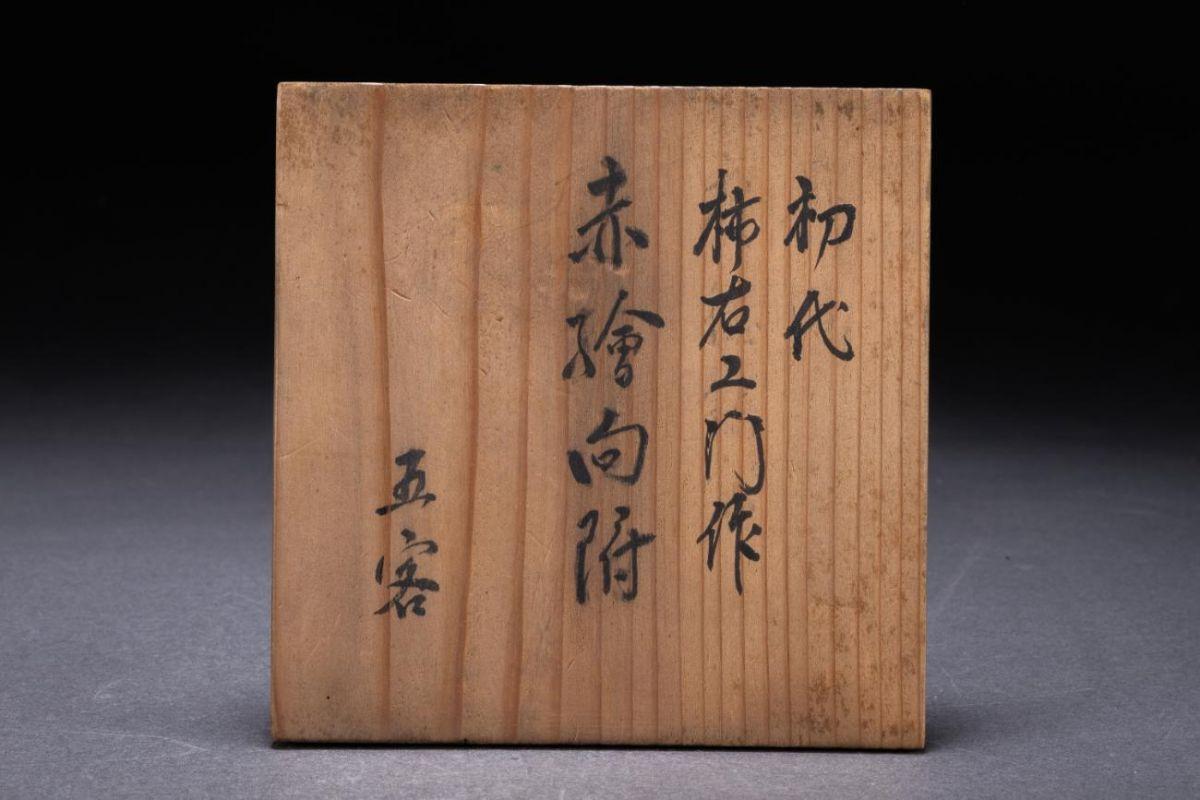 初代
柿右エ門作
赤繪向附
五客